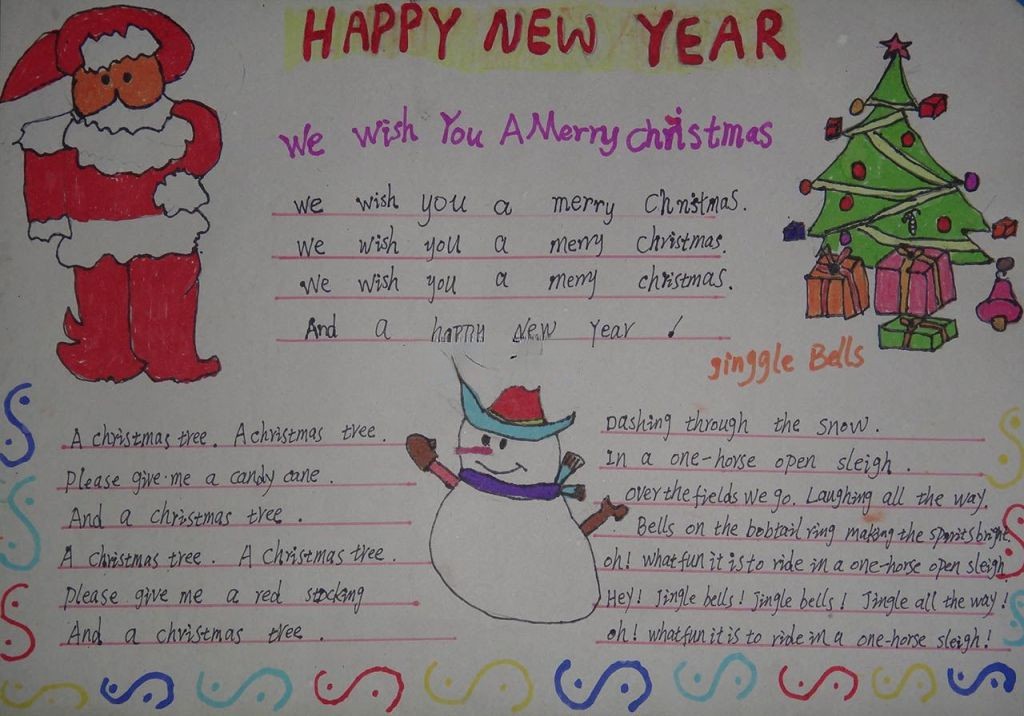 HAPPY NEW YEAR
We Wish You A Merry Christmas
we wish you a merry Christmas.
we wish you a merry Christmas.
we wish you a merry christmas.
And a happy New Year !
A christmas tree. A christmas tree.
Please give me a candy cane.
And a christmas tree.
A christmas tree. A christmas tree.
Please give me a red stocking
And a christmas tree.
ginggle Bells
Dashing through the snow.
In a one-horse open sleigh.
over the fields we go. Laughing all the way.
Bells on the bobtail ring making the spirits bright
oh! what fun it is to ride in a one-horse open sleigh
Hey! Jingle bells! Jingle bells! Jingle all the way!
oh! what fun it is to ride in a one-horse sleigh!